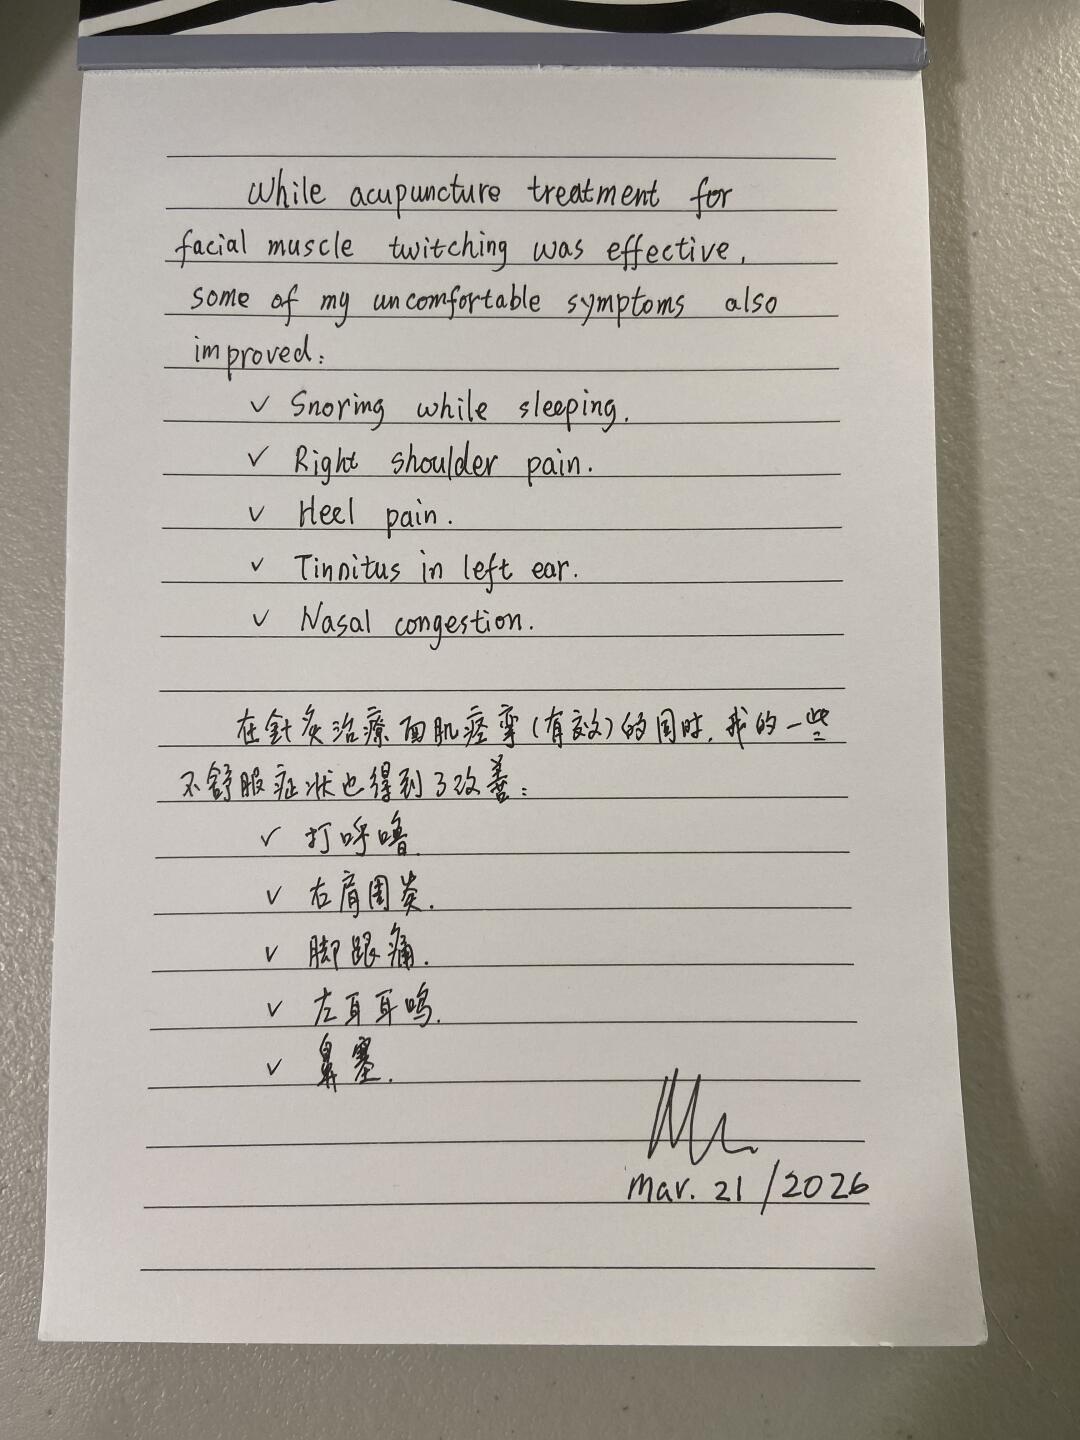 While acupuncture treatment for
facial muscle twitching was effective,
some of my uncomfortable symptoms also
improved:
✓ Snoring while sleeping.
✓ Right shoulder pain.
✓ Heel pain.
✓ Tinnitus in left ear.
✓ Nasal congestion.
在針灸治療面肌痉挛(有效)的同时,我的一些
不舒服症状也得到了改善:
✓ 打呼噜.
✓ 右肩周炎.
✓ 脚跟痛.
✓ 左耳耳鸣.
✓ 鼻塞.
Mar. 21/2026